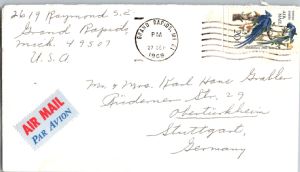 2619 Raymond S.E.
Grand Rapids
Mich. 49507
U.S.A
GRAND RAPIDS, MI
PM
27 DEC
1969
20¢
Mr & Mrs. Karl Hans Grabler
Str. 29
Obertürkheim
Stuttgart,
Germany
AIR MAIL
PAR AVION